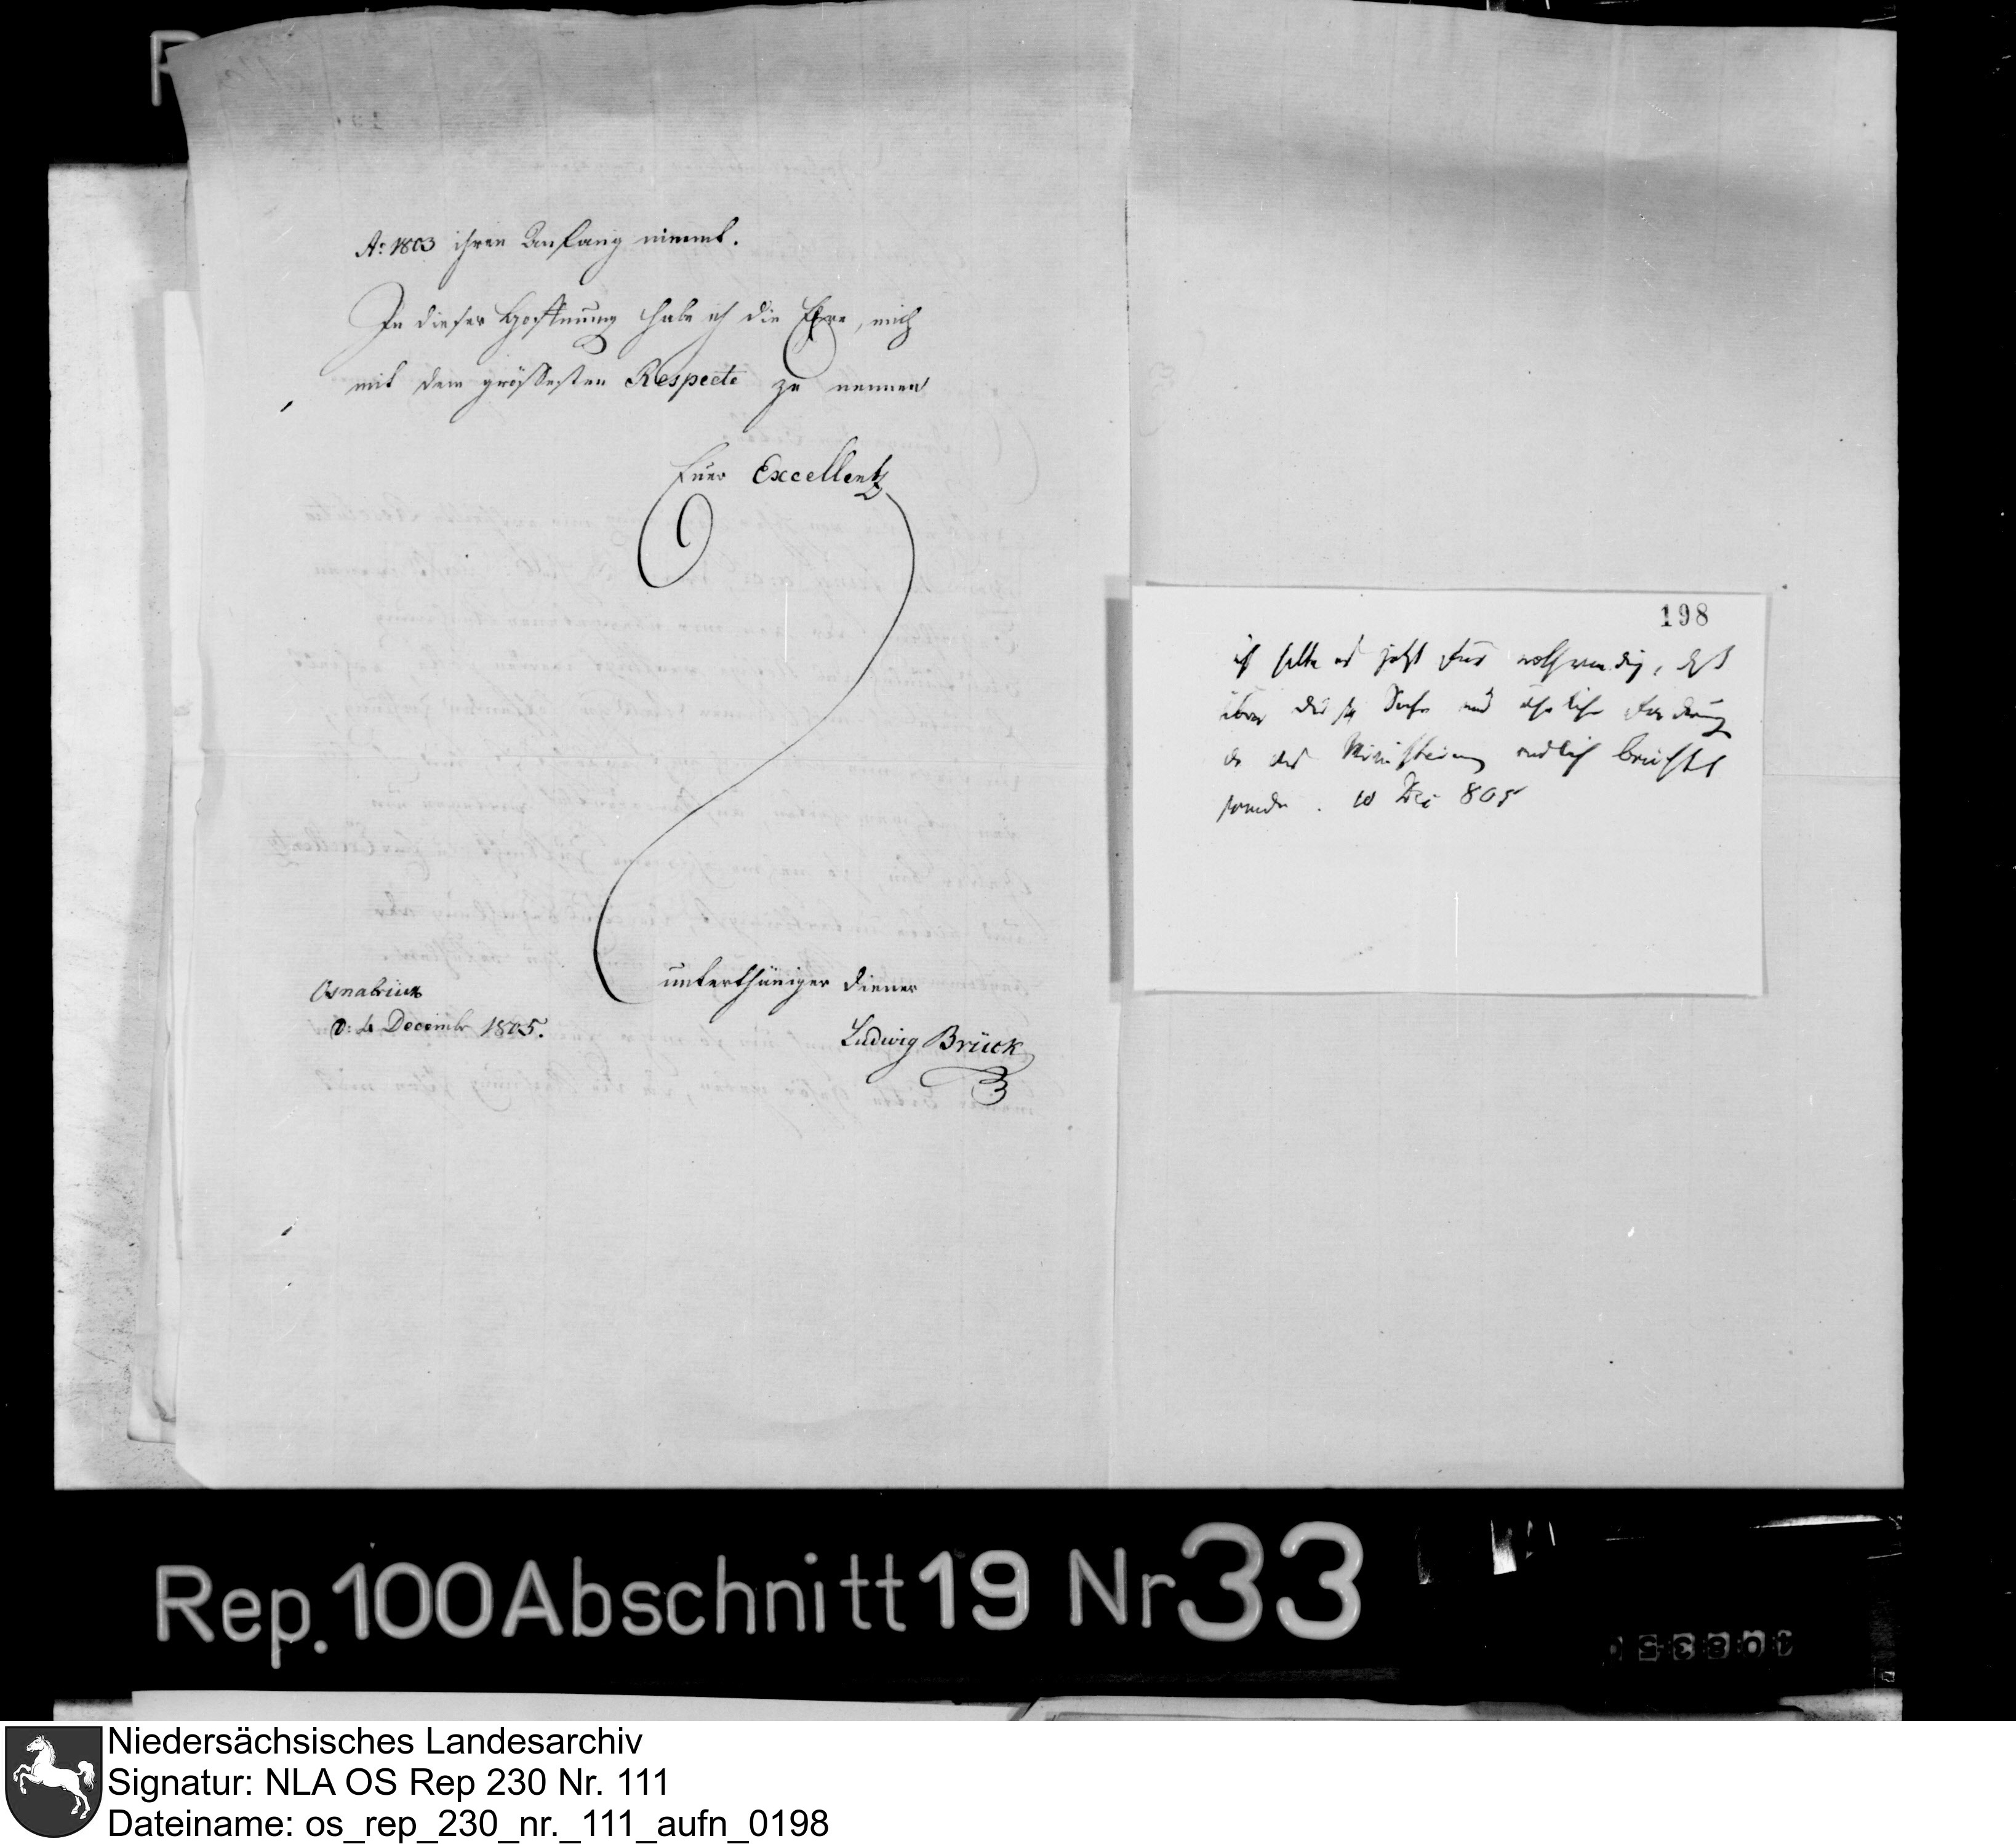 Ao: 1803 ihren Anfang nimmt.
In dieser Hoffnung habe ich die Ehre, mich
mit dem grössesten Respecte zu nennen
Euer Excellentz
unterthäniger Diener
Osnabrück
d: 4 Decembr 1805.
Ludwig Brück
198
ich halte es jetzt für nothwendig, daß
über diese Sache und ähnliche Forderung
an das Ministerium endlich berichtet
werde. 10 Dec 805
Rep.100 Abschnitt 19 Nr 33
Niedersächsisches Landesarchiv
Signatur: NLA OS Rep 230 Nr. 111
Dateiname: os_rep_230_nr._111_aufn_0198